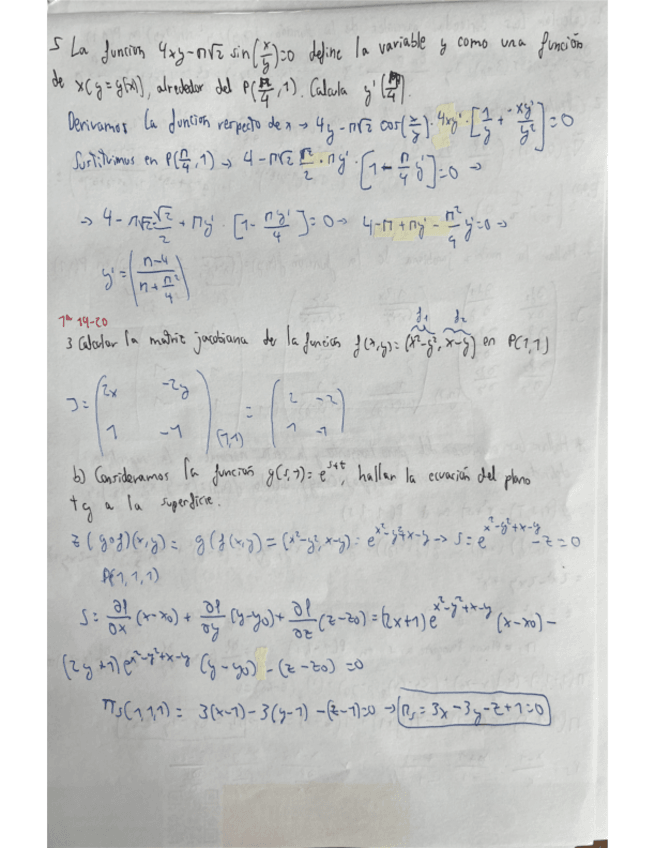 5 La funcion 4xy-π√2 sin(x/y)=0 define la variable y como una función
de x(y=y(x)), alrededor del P(π/4,1). Calcula y'(π/4).
Derivamos la funcion respecto de x → 4y-π√2 cos(x/y)·4xy'·[1/y+-xy'/y²]=0
Sustituimos en P(π/4,1) → 4-π√2 √2/2·πy'·[1-π/4 y']=0 →
→ 4-π√2·√2/2+πy'·[1-πy'/4]=0 → 4-π+πy'-π²/4 y'=0 →
y'=(π-4/π+π²/4)
7ª 19-20
f1 f2
3 Calcular la matriz jacobiana de la funcion f(x,y)=(x²-y², x-y) en P(1,1)
J=(2x -2y
1 -1)(1,1) = (2 -2
1 -1)
b) Consideramos la función g(s,t)=e^s+t, hallar la ecuación del plano
tg a la superficie.
z(g∘f)(x,y)= g(f(x,y)=(x²-y²,x-y)=e^x²-y²+x-y → S=e^x²-y²+x-y -z=0
P(1,1,1)
S=∂f/∂x (x-x0)+∂f/∂y (y-y0)+∂f/∂z (z-z0)=(2x+1)e^x²-y²+x-y (x-x0)-
(2y+1)e^x²-y²+x-y (y-y0)-(z-z0)=0
πs(1,1,1)= 3(x-1)-3(y-1)-(z-1)=0 → πs=3x-3y-z+1=0